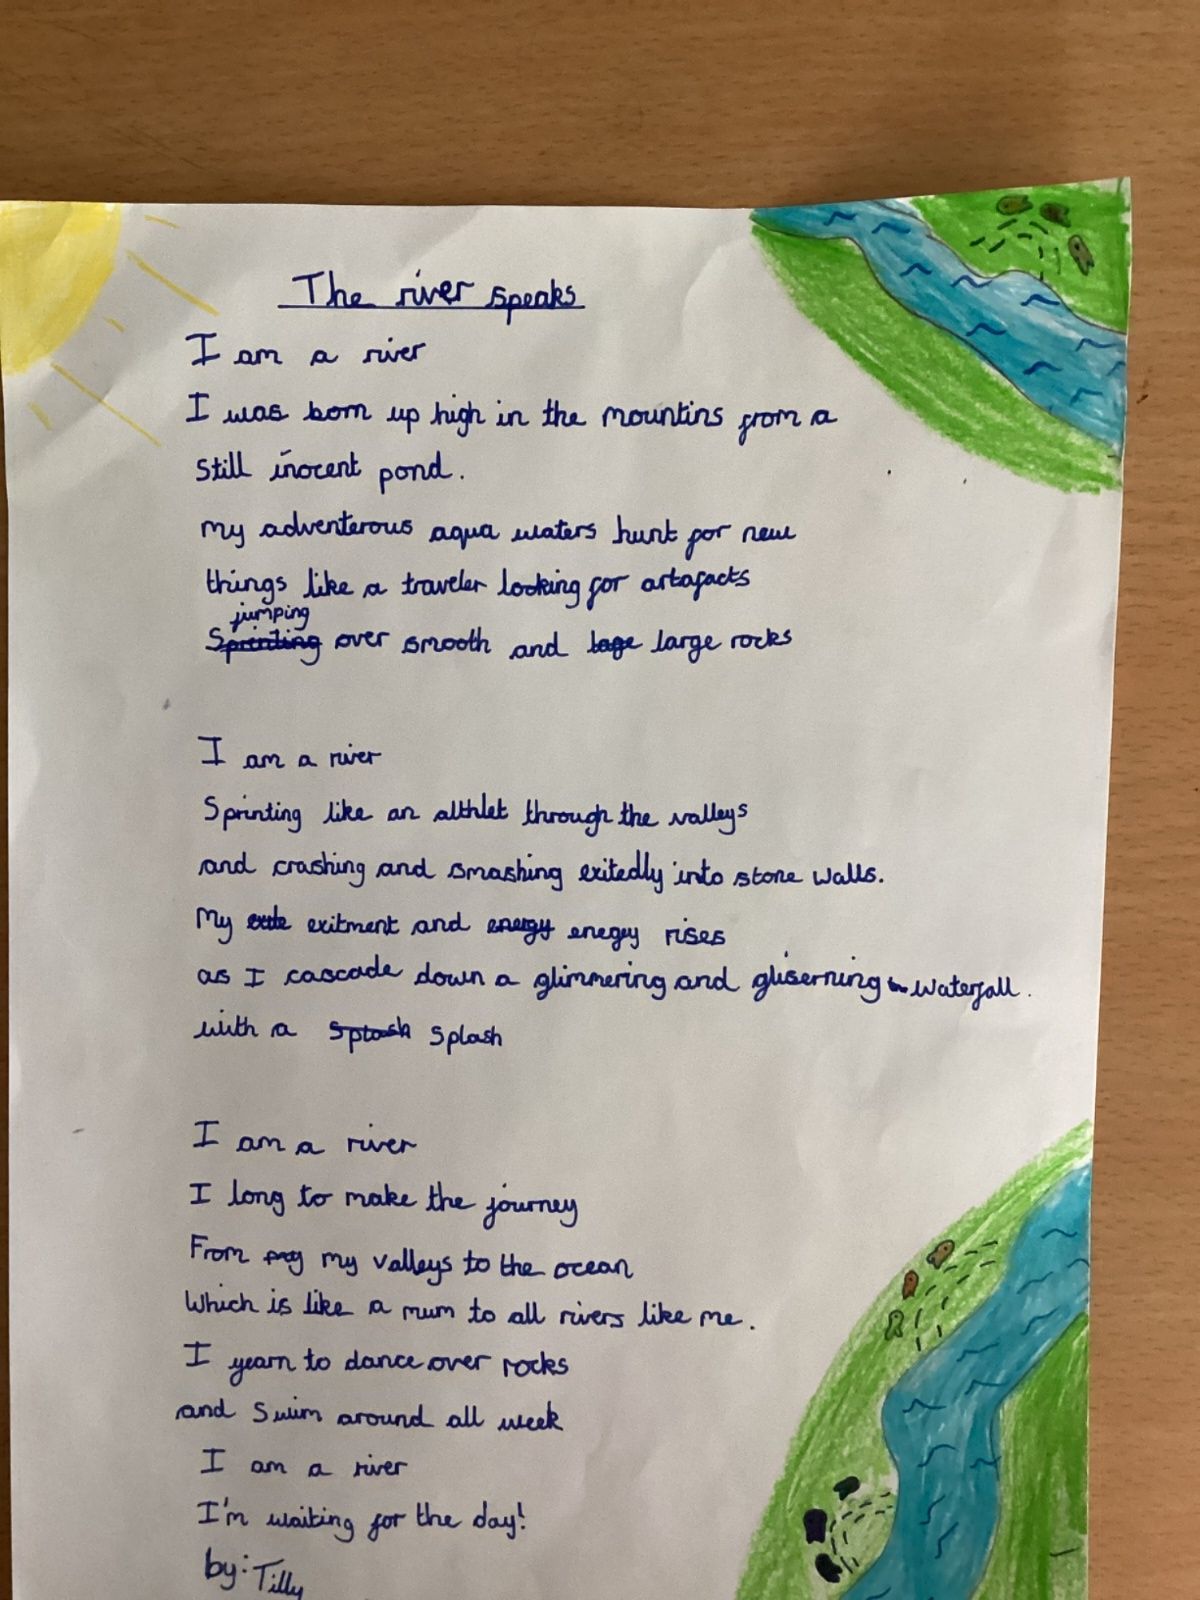 The river speaks
I am a river
I was born up high in the mountins from a
still inocent pond.
my adventerous aqua waters hunt for new
things like a traveler looking for artafacts
jumping
Sprinting over smooth and lage large rocks
I am a river
Sprinting like an althlet through the valleys
and crashing and smashing exitedly into stone walls.
My exite exitment and energy enegey rises
as I cascade down a glimmering and gliserning waterfall.
with a Splash Splash
I am a river
I long to make the journey
From my valleys to the ocean
Which is like a mum to all rivers like me.
I yearn to dance over rocks
and Swim around all week
I am a river
I'm waiting for the day!
by: Tilly